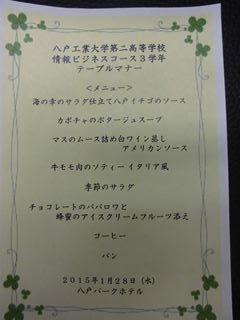 八戸工業大学第二高等学校
情報ビジネスコース3学年
テーブルマナー
<メニュー>
海の幸のサラダ仕立て八戸イチゴのソース
カボチャのポタージュスープ
マスのムース詰め白ワイン蒸し
アメリカンソース
牛モモ肉のソティーイタリア風
季節のサラダ
チョコレートのババロワと
蜂蜜のアイスクリームフルーツ添え
コーヒー
パン
2015年1月28日(水)
八戸パークホテル